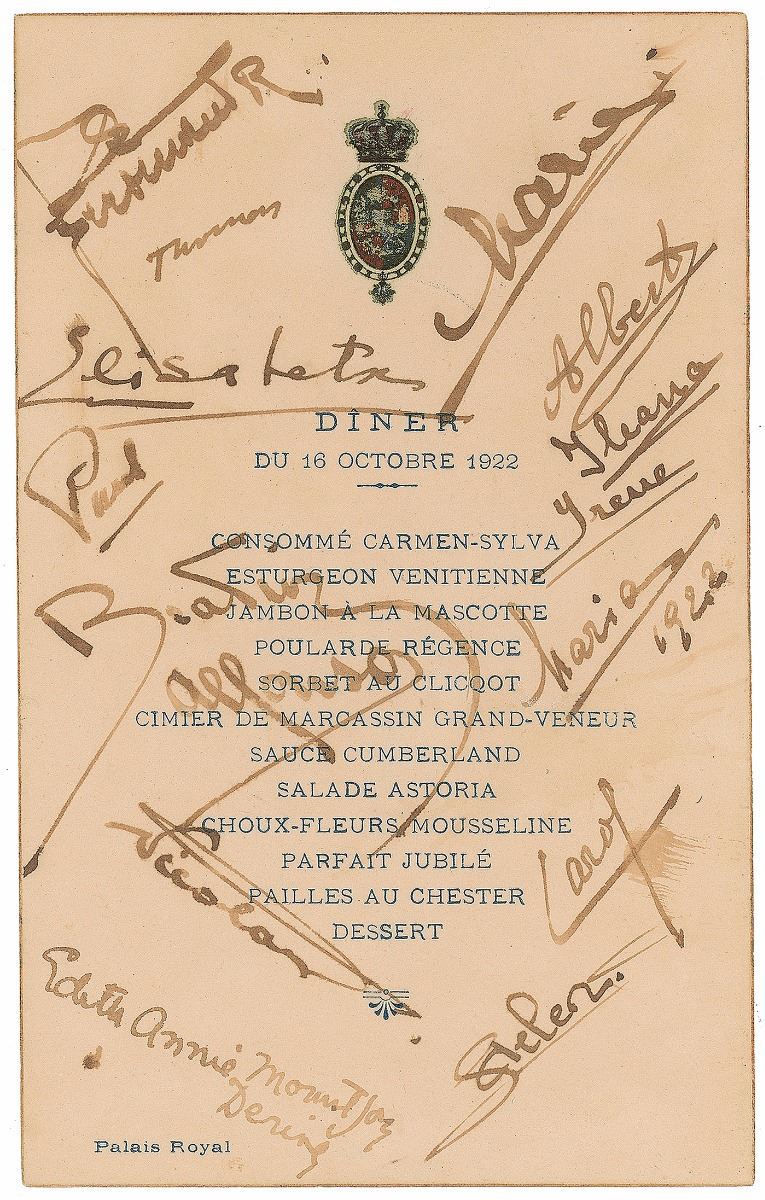 Ferdinand R.
Maria
Thomas
Albert
Elisabeta
Ileana
DÎNER
DU 16 OCTOBRE 1922
Paul
Irene
CONSOMMÉ CARMEN-SYLVA
ESTURGEON VENITIENNE
Beatriz
Maria
1922
JAMBON À LA MASCOTTE
POULARDE RÉGENCE
SORBET AU CLICQOT
Alfonso
CIMIER DE MARCASSIN GRAND-VENEUR
SAUCE CUMBERLAND
SALADE ASTORIA
CHOUX-FLEURS MOUSSELINE
PARFAIT JUBILÉ
PAILLES AU CHESTER
DESSERT
Carol
Nicolas
Edith Annie Mountjoy
Dering
Helen.
Palais Royal